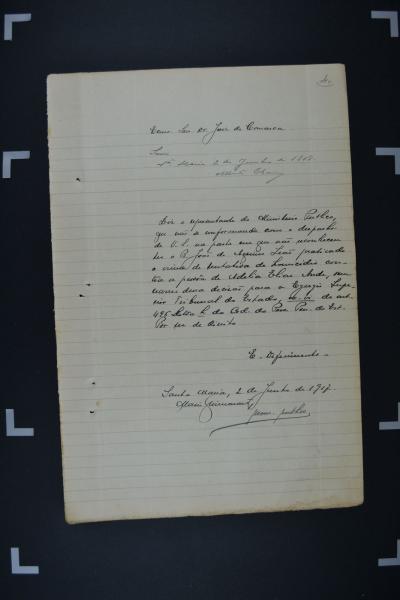 Exmo. Snr. Dr. Juiz da Comarca
Sta Maria 2 de Junho de 1917.
Diz o representante do Ministerio Publico,
que não se conformando com o despacho
de V. S. na parte em que não reconheceu
ter o R. José de Aquino Leão praticado
o crime de tentativa de homicidio con-
tra a pessôa de Adelia
dessa decisão para o Egregio Supe-
rior Tribunal do Estado, do art.
495 letra do Cod. do Proc. Pen. do Est.
Por ser de direito
E. Deferimento
Santa Maria, 2 de Junho de 1917.
prom. publico.